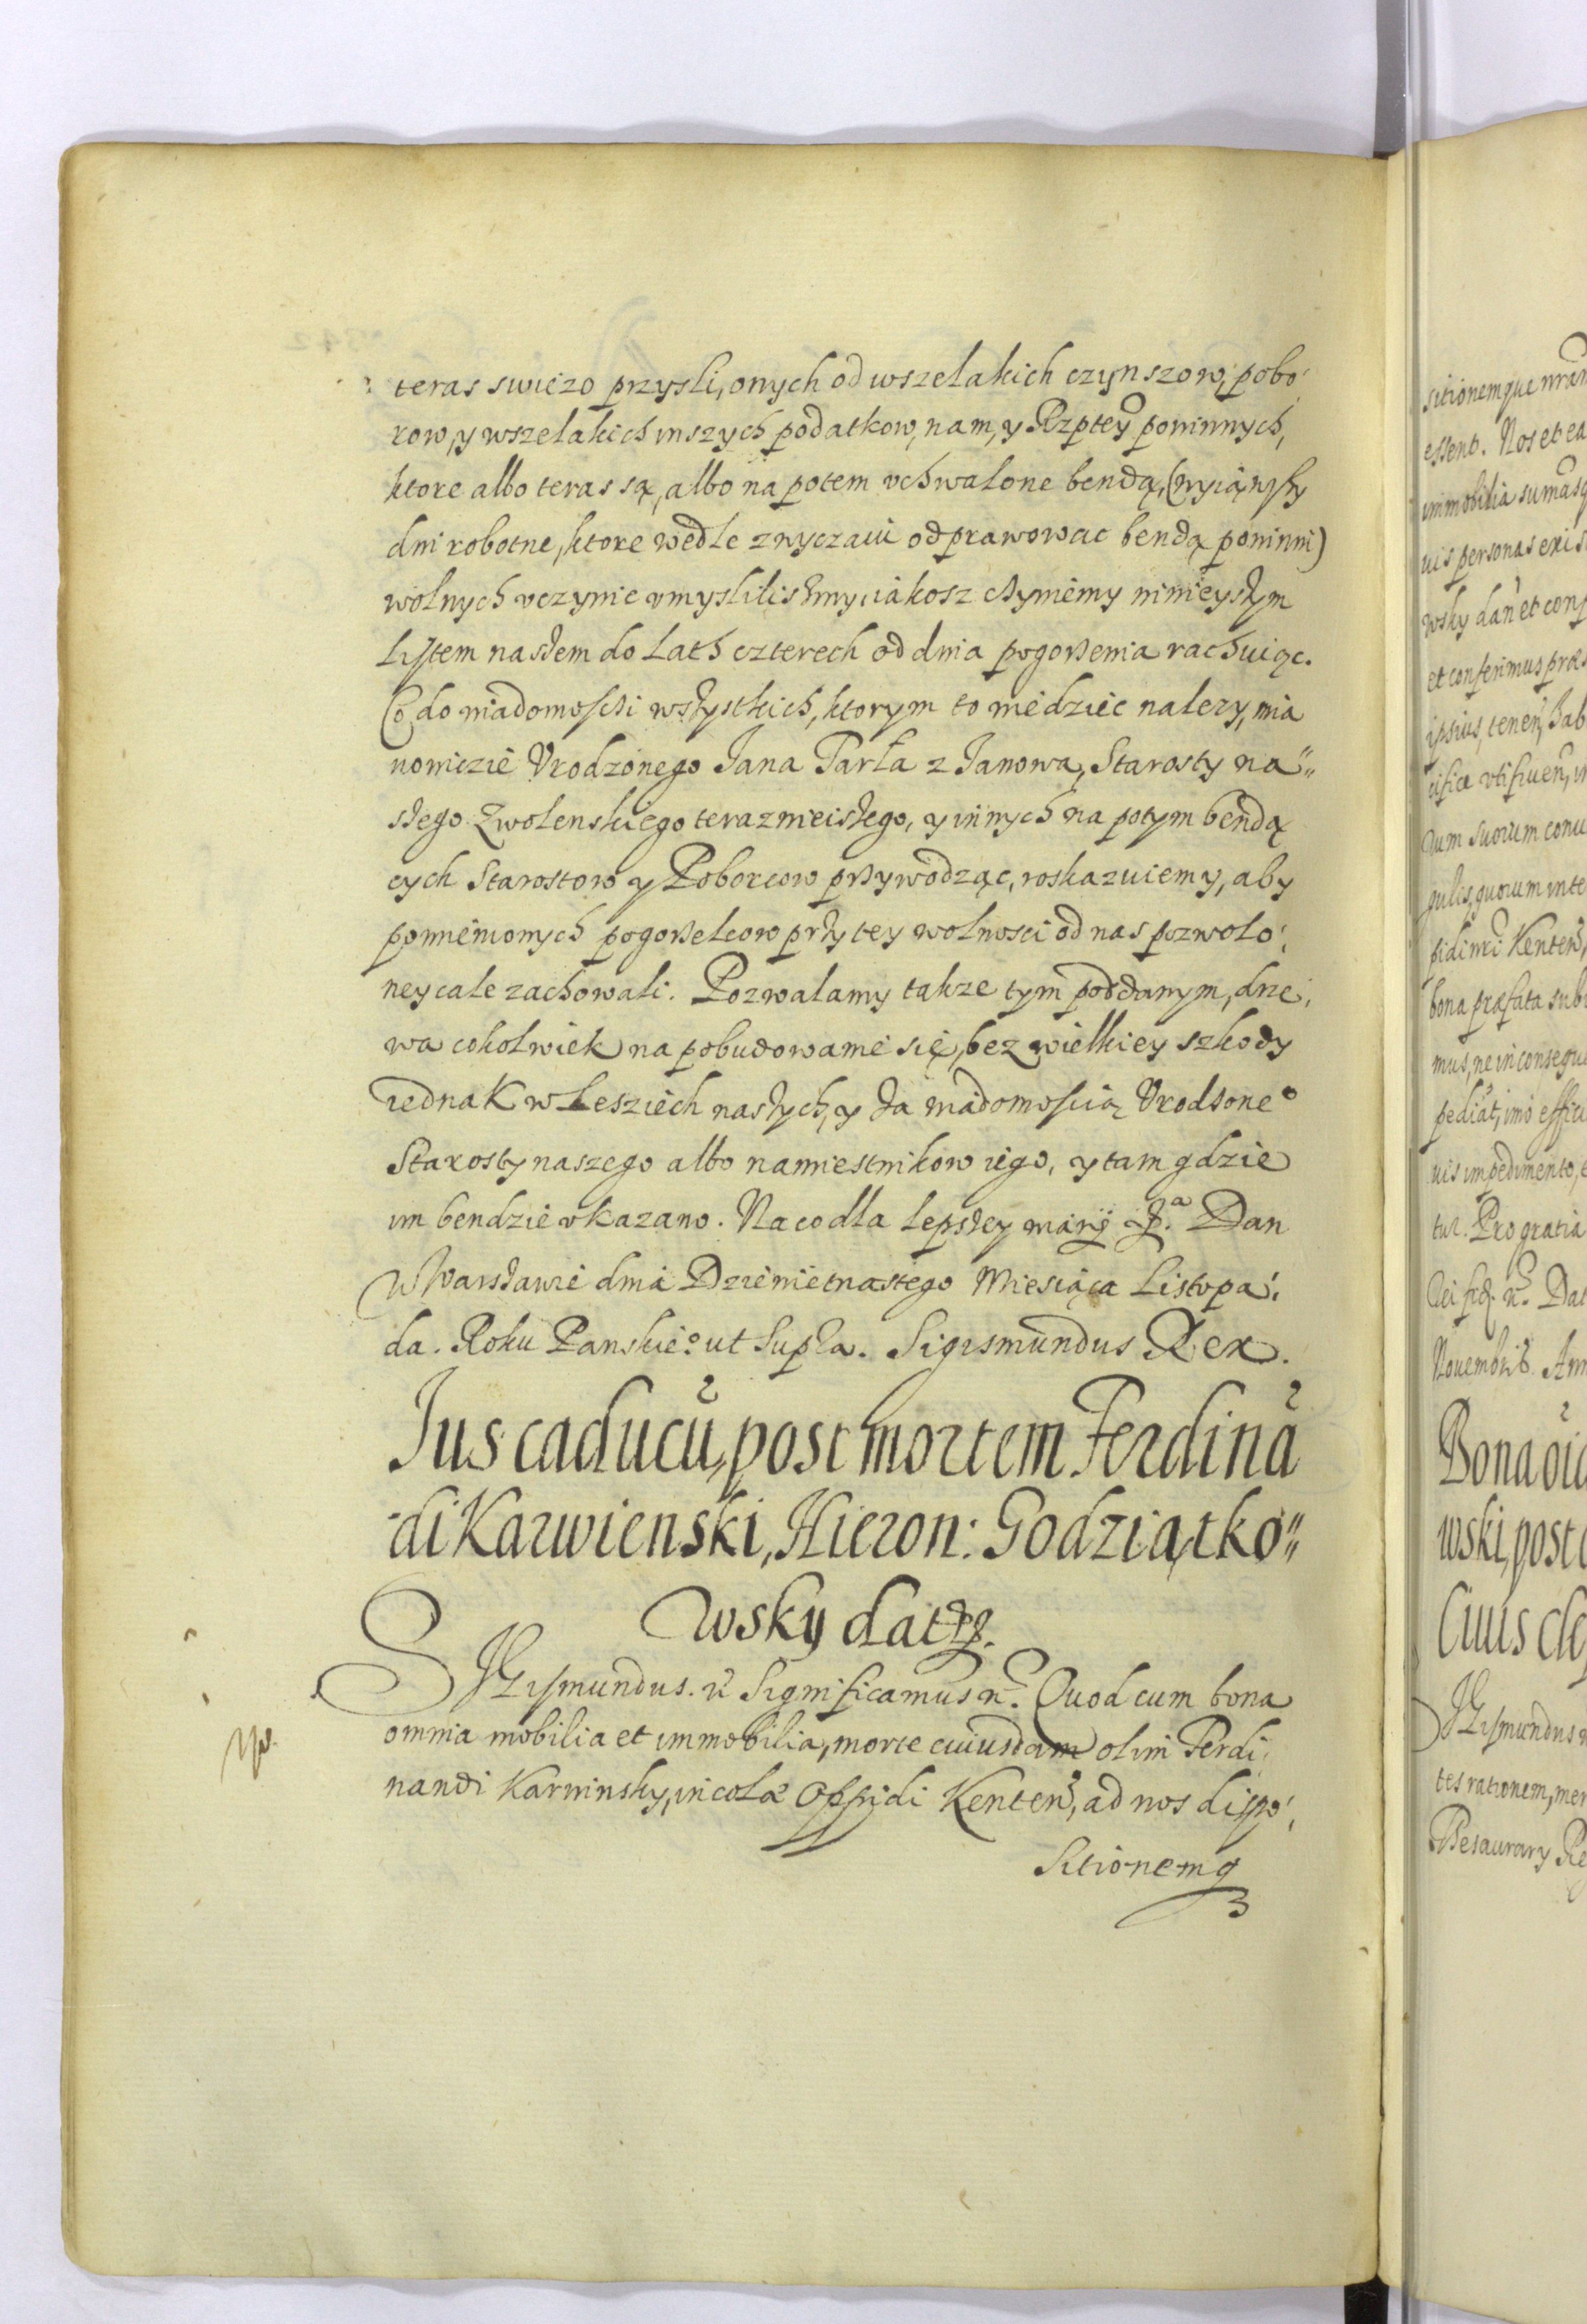 teras swiezo przysli, onych od wszelakich czynszow, pobo
row, y wszelakich inszych podatkow, nam, y Rzptey powinnych,
ktore albo teras są, albo na potem vchwalone bendą, (wyiąwszy
dni robotne, ktore wedle zwyczaiu odprawowac bendą powinni)
wolnych vczynic vmyslilismy, iakosz czyniemy ninieyszym
Listem naszem do Lath czterech od dnia pogorzenia rachuiąc.
Co do wiadomosczi wszystkich, ktorym to wiedziec nalezy, mia
nowiczie Vrodzonego Jana Tarła z Janowa, Starosty na„
szego Zwolenskiego terazneiszego, y innych na potym bendą
cych Starostow y Poborcow przywodząc, roskazuiemy, aby
pomienionych pogorzelcow przy tey wolnosci od nas pozwolo
ney cale zachowali. Pozwalamy takze tym poddanym, drze
wa cokolwiek na pobudowanie się, bez wielkiey szkody
iednak w Lesziech naszych, y za wiadomoscią Vrodzone°
Starosty naszego albo namiestnikow iego, y tam gdzie
im bendzie vkazano. Na co dla lepszey wiary Dan
w Warszawie dnia Dziewietnastego Miesiąca Listopa
da. Roku Panskie° ut supra. Sigismundus Rex.
Ius caducū, post mortem Ferdinā
di Karwienski, Hieron: Godziątko„
wsky datr̃.
SIGismundus. Significamus. Quod cum bona
omnia mobilia et immobilia, morte cuiusdam olim Ferdi
nandi Karwinsky, incolæ Oppidi Kenteñ, ad nos dispo
sitionemq
sitionemque nrām
essent. Nos et ea
immobilia sumasq
uis personas exis
wsky dañ et conf
et conferimus præs
ipsius, teneñ, hab
cifice vtifrueñ,
suorum
quorum inte
Kenteñ,
bona præfata sub
mus, ne in consequ
pediat, imo effici
uis impedimento,
tur. Pro gratia
Dat
Nouembris. Ann
Bona
wski, post
Cuius
SIGismundus
tes rationem, mer
Thesaurary Re